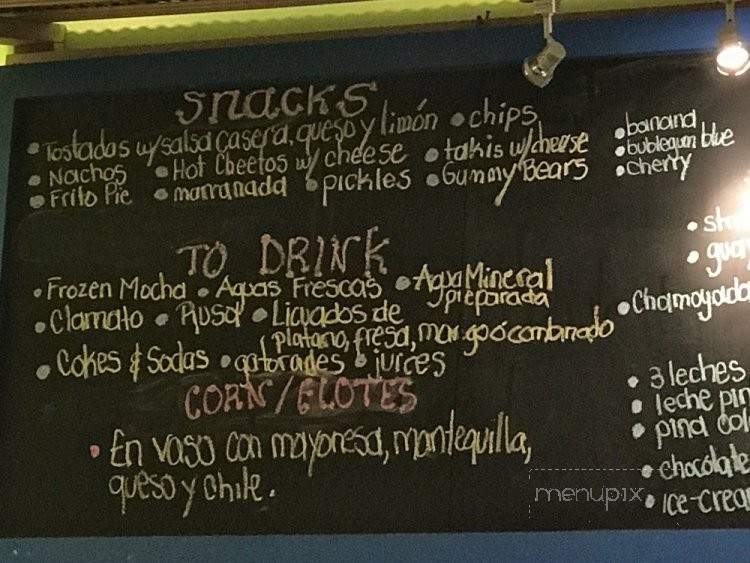 Snacks
• Tostadas w/ salsa casera, queso y limón • chips
• Nachos • Hot Cheetos w/ cheese • takis w/ cheese
• Frito Pie • marranada • pickles • Gummy Bears
TO DRINK
• Frozen Mocha • Aguas Frescas • Agua Mineral
preparada
• Clamato • Rusa • Licuados de
platano, fresa, mango ó combinado
• Cokes & Sodas • gatorades • juices
CORN/ELOTES
• En vaso con mayonesa, mantequilla,
queso y chile.
• banana
• bubblegum blue
• cherry
• Chamoyada
• 3 leches
• leche
• pina
• chocolate
• ice-cream
menupix